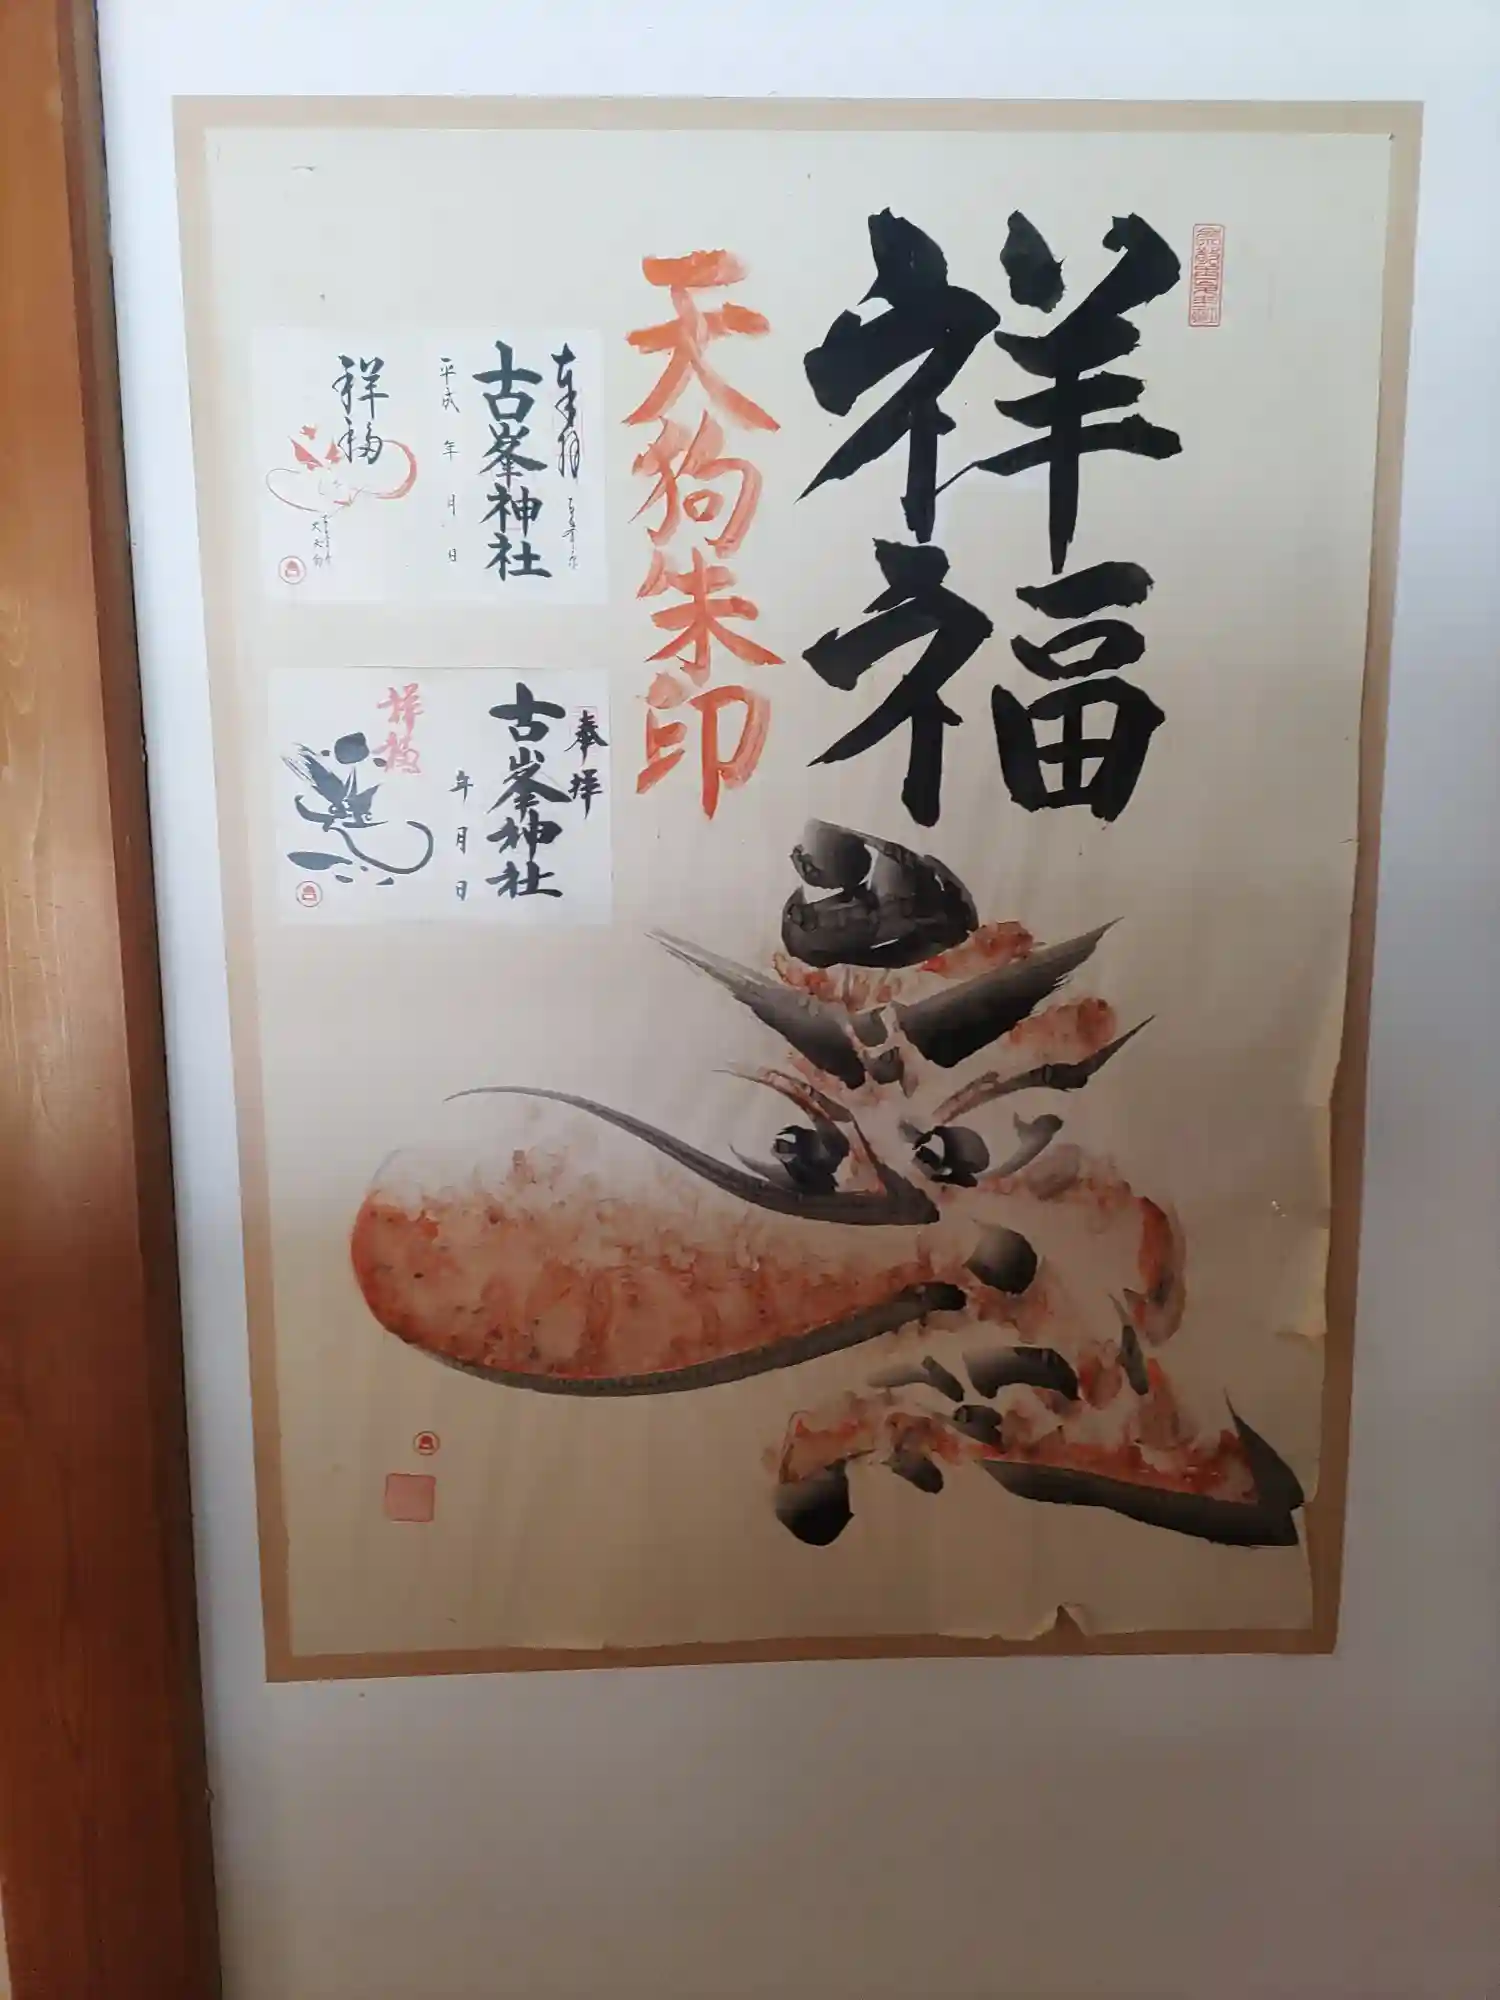 祥福
天狗朱印
奉拝
古峯神社
平成 年 月 日
祥福
大天狗
奉拝
古峯神社
年 月 日
祥福